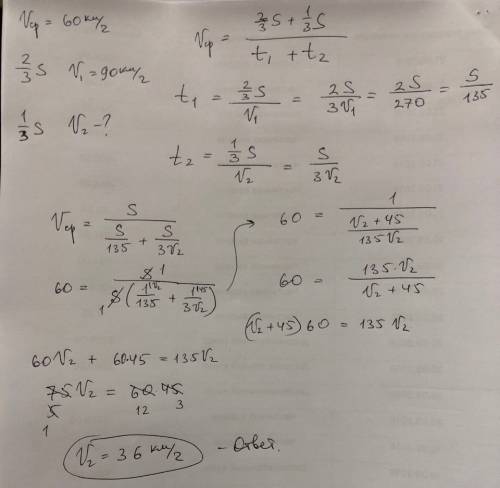 Vср = 60 км/г
2/3 S V₁ = 90 км/г
1/3 S V₂ – ?
Vср = (2/3 S + 1/3 S) / (t₁ + t₂)
t₁ = (2/3 S) / V₁ = 2S / 3V₁ = 2S / 270 = S / 135
t₂ = (1/3 S) / V₂ = S / 3V₂
Vср = S / (S/135 + S/3V₂)
60 = S 1 / 1 S (1^V₂/135 + 1^45/3V₂)
60 = 1 / ((V₂ + 45) / 135V₂)
60 = 135·V₂ / (V₂ + 45)
(V₂ + 45) 60 = 135 V₂
60V₂ + 60·45 = 135V₂
75V₂ = 60·45
5 12 3
1
V₂ = 36 км/г – Ответ.